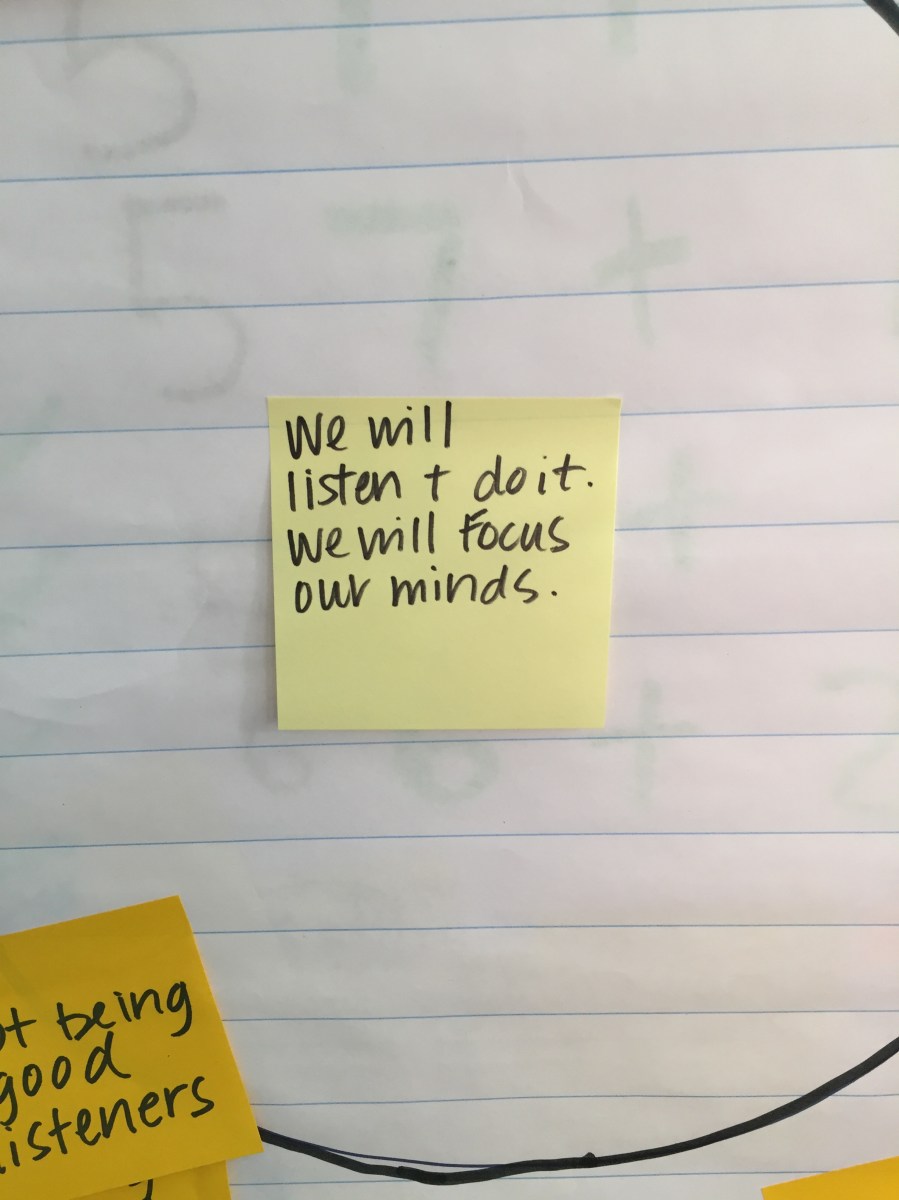 We will
listen + do it.
We will Focus
our minds.
being
good
listeners